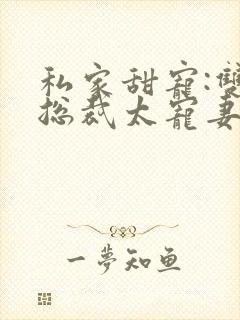 私家甜寵:雙
總裁太寵妻
一夢知魚